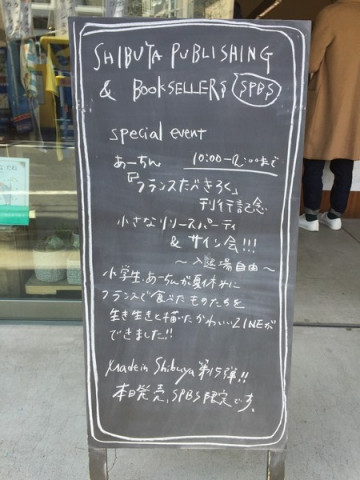 SHIBUYA PUBLISHING
& BOOKSELLERS SPBS
special event
あーちん 10:00-12:00まで
「フランスたべきろく」
刊行記念
小さなリリースパーティ
& サイン会!!!
〜入退場自由〜
小学生、あーちんが夏休みに
フランスで食べたものたちを
生き生きと描いたかわいいZINEが
できました!!
Made in Shibuya 第15弾!!
本日発売、SPBS限定です。